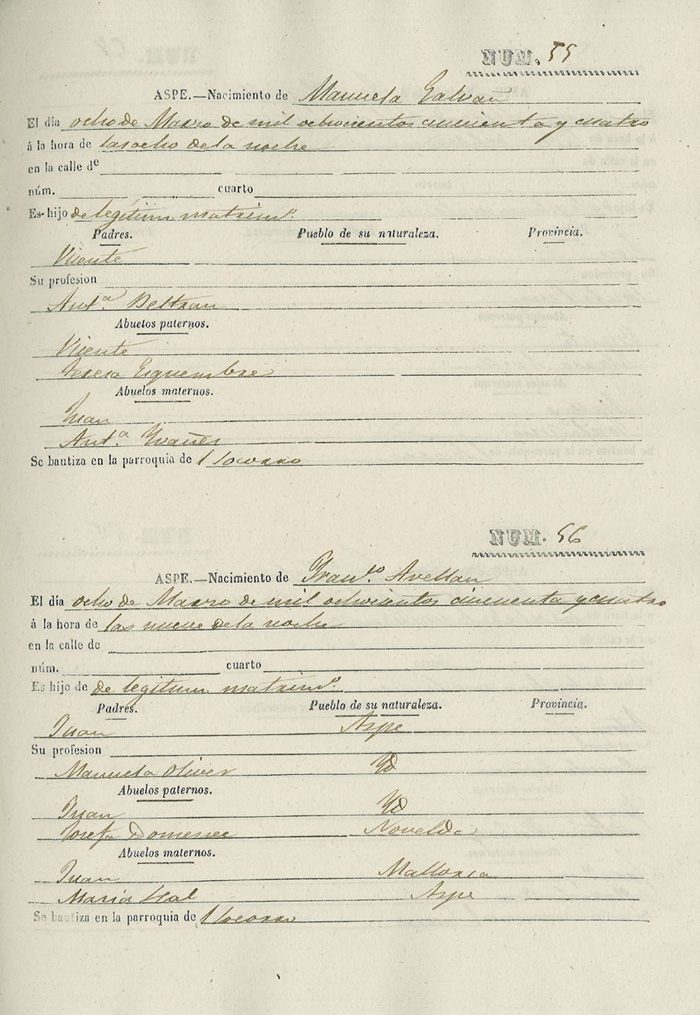 NUM. 55
ASPE.—Nacimiento de Manuela Galvan
El dia ocho de Marzo de mil ochocientos cincuenta y cuatro
á la hora de las ocho de la noche
en la calle de
núm. cuarto
Es hijo de legitim matrim.º
Padres. Pueblo de su naturaleza. Provincia.
Vicente
Su profesion
Ant.ª Beltran
Abuelos paternos.
Vicente
Teresa Esquembre
Abuelos maternos.
Juan
Ant.ª Yvañes
Se bautiza en la parroquia de l Socorro
NUM. 56
ASPE.—Nacimiento de Fran.co Avellan
El dia ocho de Marzo de mil ochocientos cincuenta y cuatro
á la hora de las nueve de la noche
en la calle de
núm. cuarto
Es hijo de de legitim matrim.º
Padres. Pueblo de su naturaleza. Provincia.
Juan Aspe
Su profesion
Manuela Oliver Yd
Abuelos paternos.
Juan Yd
Josefa Domenec Novelda
Abuelos maternos.
Juan Mallorca
Maria Aspe
Se bautiza en la parroquia de l Socorro